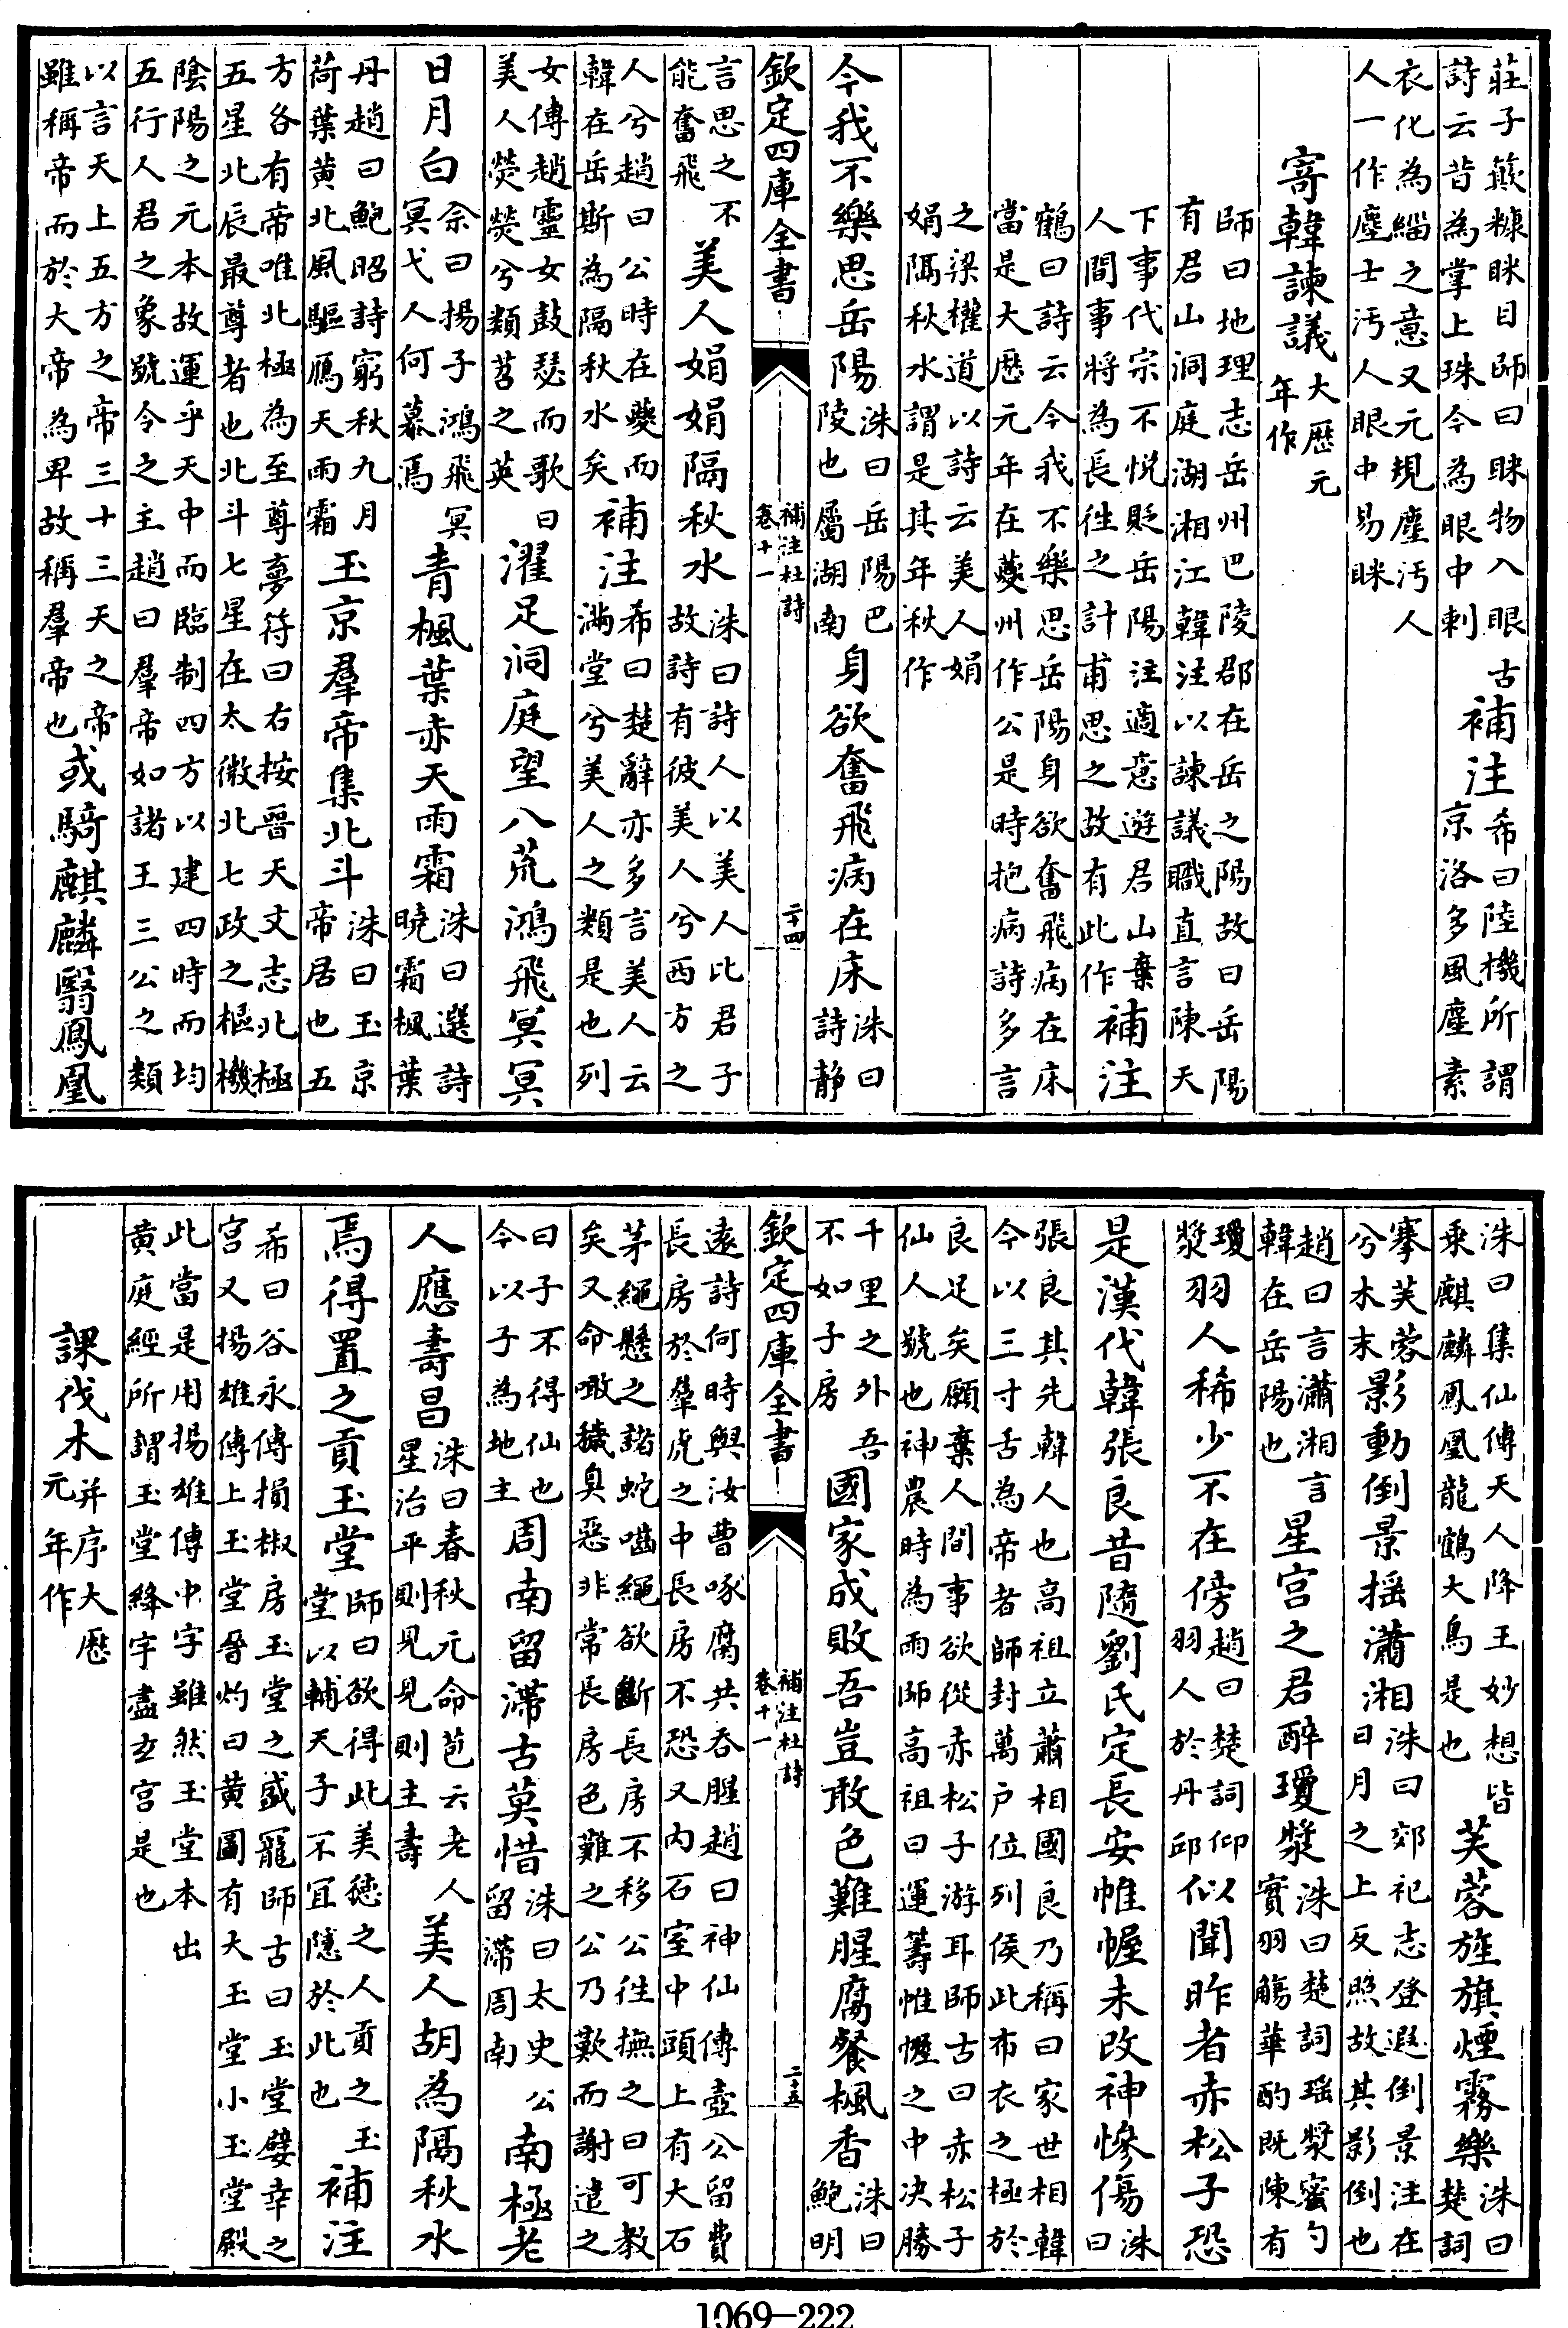 莊子簸糠眯目師曰眯物入眼古詩云昔為掌上珠今為眼中刺補注希曰陸機所謂京洛多風塵素
衣化為緇之意又元規塵汚人人一作塵士汚人眼中易眯
寄韓諫議大歷元年作
師曰地理志岳州巴陵郡在岳之陽故曰岳陽有君山洞庭湖湘江韓注以諫議職直言陳天
下事代宗不悦貶岳陽注適意遊君山棄人間事將為長徃之計甫思之故有此作補注
鶴曰詩云今我不樂思岳陽身欲奮飛病在床當是大歷元年在夔州作公是時抱病詩多言
之梁權道以詩云美人娟娟隔秋水謂是其年秋作
今我不樂思岳陽洙曰岳陽巴陵也屬湖南身欲奮飛病在床洙曰詩静
欽定四庫全書 補注杜詩 卷十一 二十四
言思之不能奮飛美人娟娟隔秋水洙曰詩人以美人比君子故詩有彼美人兮西方之
人兮趙曰公時在夔而韓在岳斯為隔秋水矣補注希曰楚辭亦多言美人云滿堂兮美人之類是也列
女傳趙靈女鼓瑟而歌曰美人熒熒兮類苕之英濯足洞庭望八荒鴻飛冥冥
日月白佘曰揚子鴻飛冥冥弋人何慕焉青楓葉赤天雨霜洙曰選詩曉霜楓葉
丹趙曰鮑昭詩窮秋九月荷葉黄北風驅鴈天雨霜玉京羣帝集北斗洙曰玉京帝居也五
方各有帝唯北極為至尊夢符曰右按晉天文志北極五星北辰最尊者也北斗七星在太微北七政之樞機
陰陽之元本故運乎天中而臨制四方以建四時而均五行人君之象號令之主趙曰羣帝如諸王三公之類
以言天上五方之帝三十三天之帝雖稱帝而於大帝為卑故稱羣帝也或騎麒麟翳鳳凰
洙曰集仙傳天人降王妙想皆乗麒麟鳳凰龍鶴大鳥是也芙蓉旌旗煙霧樂洙曰楚詞
搴芙蓉兮木末影動倒景揺瀟湘洙曰郊祀志登遐倒景注在日月之上反照故其影倒也
趙曰言瀟湘言韓在岳陽也星宫之君醉瓊漿洙曰楚詞瑶漿蜜勺實羽觴華酌既陳有
瓊漿羽人稀少不在傍趙曰楚詞仰羽人於丹邱似聞昨者赤松子恐
是漢代韓張良昔隨劉氏定長安帷幄未改神慘傷洙曰
張良其先韓人也高祖立蕭相國良乃稱曰家世相韓今以三寸舌為帝者師封萬户位列侯此布衣之極於
良足矣願棄人間事欲從赤松子游耳師古曰赤松子仙人號也神農時為雨師高祖曰運籌帷幄之中决勝
千里之外吾不如子房國家成敗吾豈敢色難腥腐餐楓香洙曰鮑明
欽定四庫全書 補注杜詩 卷十一 二十五
逺詩何時與汝曹啄腐共吞腥趙曰神仙傳壺公留費長房於羣虎之中長房不恐又内石室中頭上有大石
茅繩懸之諸蛇囓繩欲斷長房不移公徃撫之曰可教矣又命噉穢臭惡非常長房色難之公乃歎而謝遣之
曰子不得仙也今以子為地主周南留滯古莫惜洙曰太史公留滯周南南極老
人應壽昌洙曰春秋元命苞云老人星治平則見見則主壽美人胡為隔秋水
焉得置之貢玉堂師曰欲得此美徳之人貢之玉堂以輔天子不宜隱於此也補注
希曰谷永傳損椒房玉堂之盛寵師古曰玉堂嬖幸之宫又揚雄傳上玉堂晉灼曰黄圖有大玉堂小玉堂殿
此當是用揚雄傳中字雖然玉堂本出黄庭經所謂玉堂絳宇盡玄宫是也
課伐木并序大歷元年作
1069—222